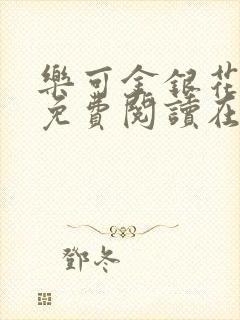 樂可金銀花
免費閱讀在
鄧冬